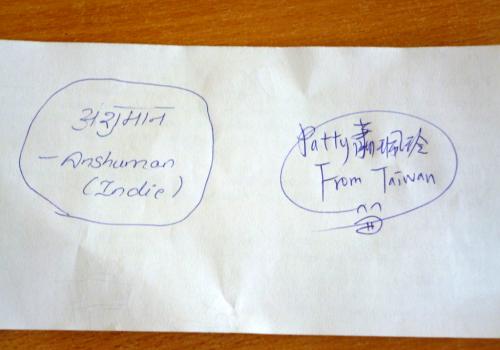 अंशुमान
- Anshuman
(Indie)
Patty 蕭珮玲
From Taiwan